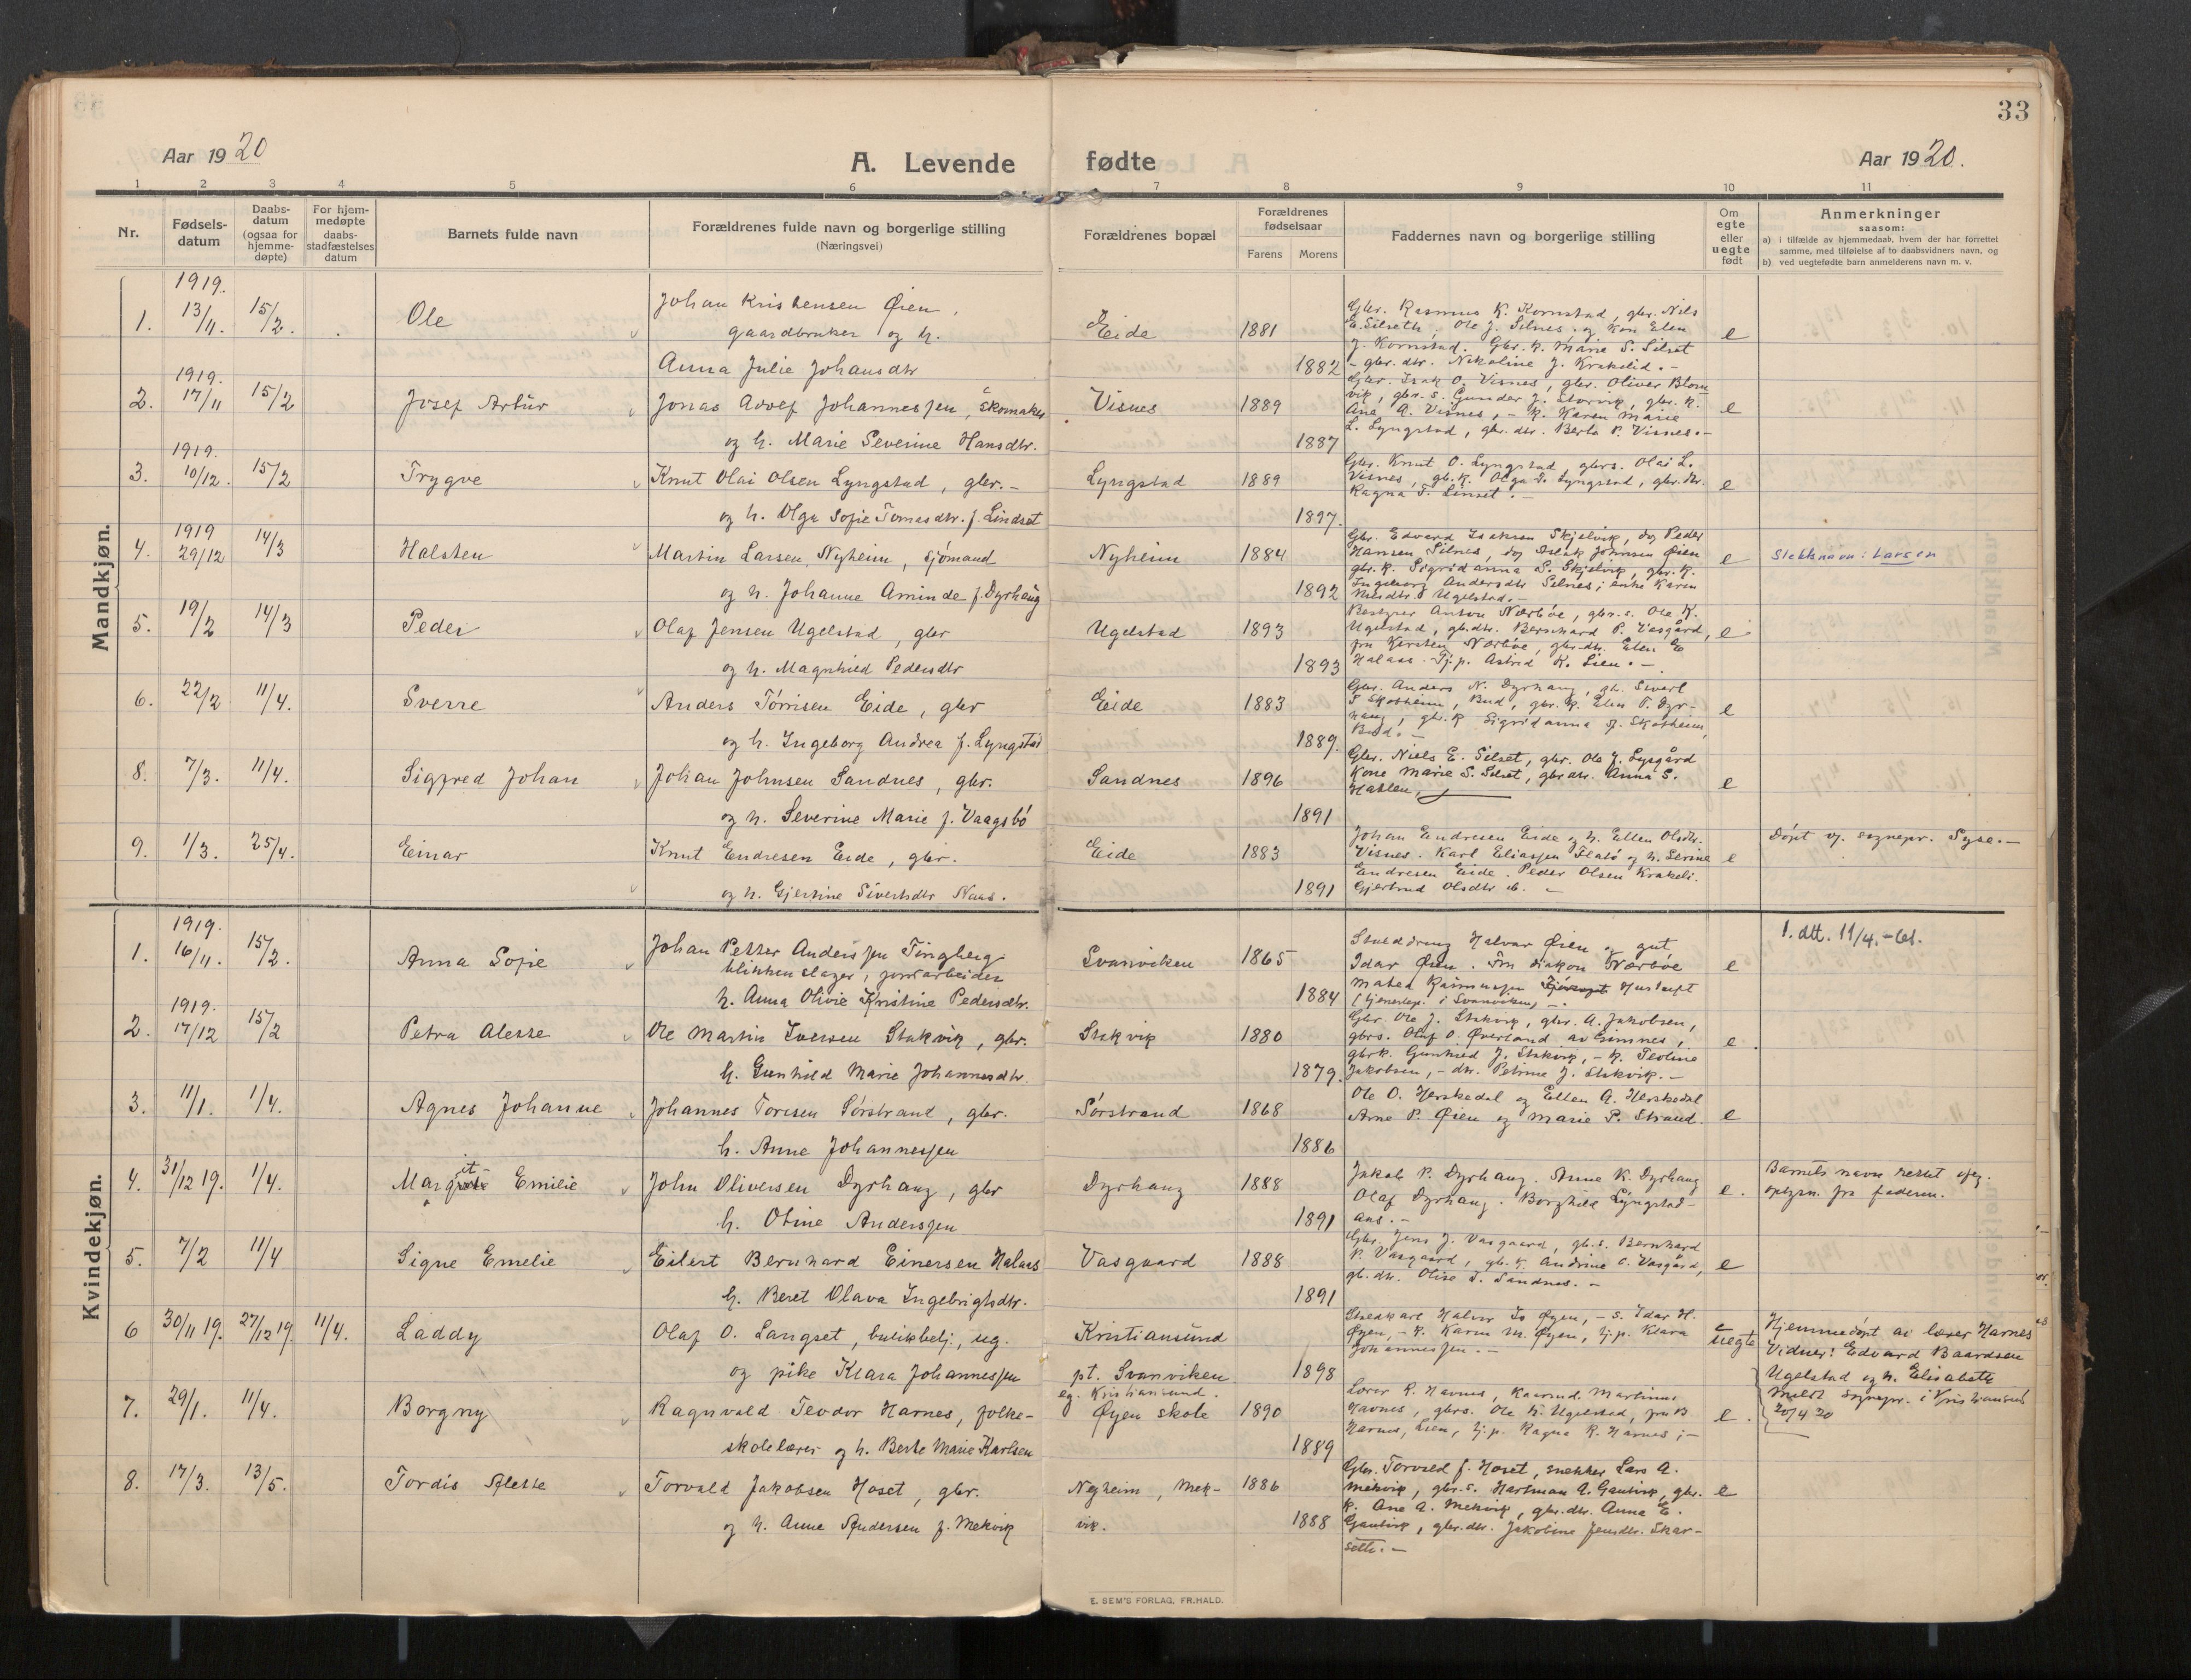 33
Aar 1920
A. Levende fødte
Aar 1920.
1 2 3 4 5 6 7 8 9 10 11
Nr.
Fødsels-
datum
Daabs-
datum
(ogsaa for
hjemme-
døpte)
For hjem-
medøpte
daabs-
stadfæstelses
datum
Barnets fulde navn
Forældrenes fulde navn og borgerlige stilling
(Næringsvei)
Forældrenes bopæl
Forældrenes
fødselsaar
Farens Morens
Faddernes navn og borgerlige stilling
Om
egte
eller
uegte
født
Anmerkninger
saasom:
a) i tilfælde av hjemmedaab, hvem der har forrettet
samme, med tilføielse af to daabsvidners navn, og
b) ved uegtefødte barn anmelderens navn m. v.
Mandkjøn.
1919.
1. 13/11. 15/2. Ole
Johan Kristensen Øien,
gaardbruker og h.
Anna Julie Johansdtr
Eide 1881 1882 e
Gbr. Rasmus K. Kornstad, gbr. Nils
E. Silseth, Ole J. Silnes, og Kone Elen
J. Kornstad. Gbr. k. Marie S. Silset
- gbr. dtr. Nikoline J. Krakelid. -
1919.
2. 17/11 15/2 Josef Artur
Jonas Adolf Johannessen, skomaker
og h. Marie Severine Hansdtr.
Visnes 1889 1887 e
Gbr. Isak O. Visnes, gbr. Oliver Blom
vik, gbr. s. Gunder J. Storvik, gbr. k.
Ane A. Visnes, - k. Karen Marie
L. Lyngstad, gbr. dtr. Berta P. Visnes. -
1919.
3. 10/12. 15/2 Trygve
Knut Olai Olsen Lyngstad, gbr. -
og h. Olga Sofie Tomasdtr. f. Lindset
Lyngstad 1889 1897. e
Gbr. Knut O. Lyngstad gbrs. Olai L.
Visnes, gb. k. Olga S. Lyngstad, gbr. dtr.
Ragna T. Linset. -
1919
4. 29/12 14/3 Halsten
Martin Larsen Nyheim, sjømand
og h. Johanne Aminde f. Dyrhaug
Nyheim 1884 1892 e
Gbr. Edvard Isaksen Skjelvik, do Peder
Hansen Silnes, do Aslak Johnsen Øien
gbr. k. Sigridanna S. Skjelvik, gbr. k.
Ingeborg Andersdtr Silnes; enke Karen
Ugelstad. -
Slektnavn: Larsen
5. 19/2 14/3 Peder
Olaf Jensen Ugelstad, gbr
og h. Magnhild Pedersdtr
Ugelstad 1893 1893 e
Bestyrer Anton Nærbøe, gbr. s. Ole K.
Ugelstad, gb. dtr. Bernhard P. Vasgård,
fru Kirsten Nærbøe, gbr. dtr. Elen E
Halaas. Tj. p. Astrid K. Lien. -
6. 22/2 11/4. Sverre
Anders Tórrisen Eide, gbr
og h. Ingeborg Andrea f. Lyngstad
Eide 1883 1889. e
Gbr. Anders N. Dyrhaug, gb. Sivert
T Skotheim, Bud, gbr. k. Elen T. Dyr-
haug, gbr. k Sigridanna J. Skotheim,
Bud. -
8. 7/3. 11/4. Sigfred Johan
Johan Johnsen Sandnes, gbr.
og h. Severine Marie f. Vaagsbó
Sandnes 1896 1891 e
Gbr. Niels E. Silset, gbr. Ole J. Lysgård
Kone Marie S. Silset, gbr dtr. Anna S.
Hatlen,
9. 1/3. 25/4. Einar
Knut Endresen Eide, gbr.
og h. Gjertine Sivertsdtr Naas.
Eide 1883 1891 e
Johan Endresen Eide og h. Ellen Olsdtr.
Visnes. Karl Eliassen Flató og h. Serine
Endresen Eide. Peder Olsen Krakeli.
Gjertrud Olsdtr ib. -
Dópt af sognepr. Syse. -
Kvindekjøn.
1919.
1. 16/11. 15/2. Anna Sofie
Johan Petter Anderssen Tingberg
blikkenslager, jordarbeider
h. Anna Olivie Kristine Pedersdtr.
Svanviken 1865 1884 e
Stueddreng Halvar Øien og gut
Idar Øien. Fru diakon Nærbøe
(tjenestep. i Svanviken) -.
1. dtt. 11/4. -
1919.
2. 17/12 15/2 Petra Alette
Ole Martin Iversen Stakvik, gbr.
h. Gunhild Marie Johannesdtr.
Stakvik 1880 1879. e.
Gbr. Ole J. Stakvik, gbr. A. Jakobsen,
gbrs. Olaf O. Øverland av Gimnes,
gbrk. Gunhild J. Stakvik, - k. Teoline
Jakobsen, - dtr. Petrine J. Stakvik. -
3. 11/1. 1/4. Agnes Johanne
Johannes Toresen Sórstrand, gbr.
h. Anne Johannessen
Sórstrand 1868 1886 e
Ole O. Herskedal og Ellen A. Herskedal
Arne P. Øien og Marie P. Strand.
4. 31/12 19. 1/4. Margit Emilie
John Oliversen Dyrhaug, gbr
h. Otine Anderssen
Dyrhaug 1888 1891 e.
Jakob P. Dyrhaug. Anne K. Dyrhaug
Olaf Dyrhaug. Borghild Lyngstad-
aas. -
Barnets navn rettet efg.
oplysn. fra faderen.
5. 7/2 11/4 Signe Emelie
Eilert Bernhard Einersen Halaas
h. Beret Olava Ingebrigtsdtr.
Vasgaard 1888 1891 e
Gbr. Jens J. Vasgaard, gb. s. Bernhard
P. Vasgaard, gb. k. Andrine C. Vasgård,
gb. dtr. Olise T. Sandnes. -
6 30/11 19. 27/12 19. 11/4. Laddy
Olaf O. Langset, butikbetj., ug.
og pike Klara Johannessen
Kristiansund
pt. Svanviken
eg. Kristiansund.
1898 uegte
Halvor Is Øyen, - s. Idar H.
Øyen, - k. Karen M. Øyen, tj. p. Klara
Johannessen. -
Hjemmedópt av lærer Harnes
Vidner: Edvard Baardsen
Ugelstad og h. Elisabeth
Meldt sognepr. i Kristiansund
20/4 20
7. 29/1. 11/4. Borgny
Ragnvald Teodor Harnes, folke-
skolelærer og h. Berte Marie Karlsen
Øyen skole 1890 1889 e.
Lærer R. Havnes, Martinus
Havnes, gbrs. Ole H. Ugelstad, fru B
Harnes, Lien, tj. p. Ragna R. Harnes; -
8. 17/3. 13/5. Tordis Alette
Torvald Jakobsen Hoset, gbr.
og h. Anne Andersen f. Mekvik
Nyheim, Mek-
vik.
1886 1888 e
Gbr. Torvald J. Hoset, snekker Lars A.
Mekvik, gbr. s. Hartman A. Gautvik, gbr.
k. Ane A. Mekvik, gbr. dtr. Anna E.
Gautvik, gbr. dtr. Jakobine Jensdtr. Skar-
seth. -
E. SEM'S FORLAG, FR.HALD.